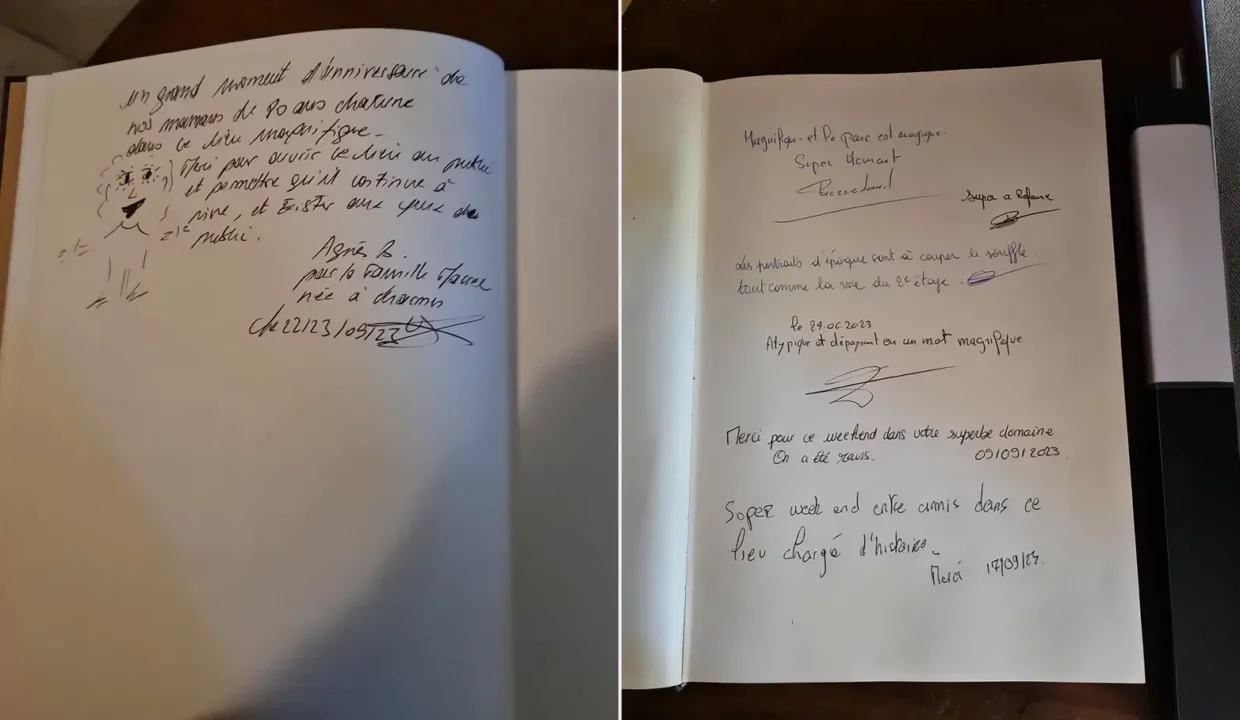 un grand moment d'énniversaire de
nos mamans de 80 ans chacune
dans ce lieu magnifique -
Merci pour ouvrir ce lieu au public
et permettre qu'il continue à
vivre, et Exister aux yeux du
public.
Agnès B.
pour la Famille
née à
le 22/23/09/23
Magnifique et le parc est magique.
Super Moment
Supa a Refaire
Les portraits d'époque sont à couper le souffle...
tout comme la vue du 2e étage.
le 29.06.2023
Atypique et dépaysant en un mot magnifique
Merci pour ce weekend dans votre superbe domaine
On a été ravis. 09/09/2023
Soper week end entre amis dans ce
lieu chargé d'histoire.
Merci 17/09/23.